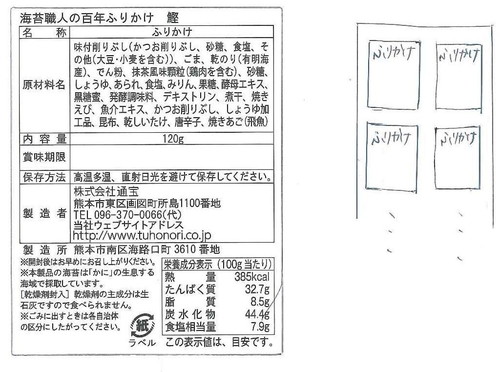 海苔職人の百年ふりかけ 鰹
名称 ふりかけ
原材料名 味付削りぶし(かつお削りぶし、砂糖、食塩、そ
の他(大豆・小麦を含む))、ごま、乾のり(有明海
産)、でん粉、抹茶風味顆粒(鶏肉を含む)、砂糖、
しょうゆ、あられ、食塩、みりん、果糖、酵母エキス、
黒糖蜜、発酵調味料、デキストリン、煮干、焼き
えび、魚介エキス、かつお削りぶし、しょうゆ加
工品、昆布、乾しいたけ、唐辛子、焼きあご(飛魚)
内容量 120g
賞味期限
保存方法 高温多湿、直射日光を避けて保存してください。
製造者 株式会社通宝
熊本市東区画図町所島1100番地
TEL 096-370-0066(代)
当社ウェブサイトアドレス
http://www.tuhonori.co.jp
製造所 熊本市南区海路口町3610番地
※開封後はお早めにお召し上がりください。
※本製品の海苔は「かに」の生息する
海域で採取しています。
[乾燥剤封入] 乾燥剤の主成分は生
石灰ですので食べられません。
※ごみに出すときは各自治体
の区分にしたがってください。
紙
ラベル
栄養成分表示(100g当たり)
熱量 385kcal
たんぱく質 32.7g
脂質 8.5g
炭水化物 44.4g
食塩相当量 7.9g
この表示値は、目安です。
ふりかけ
ふりかけ
ふりかけ
ふりかけ